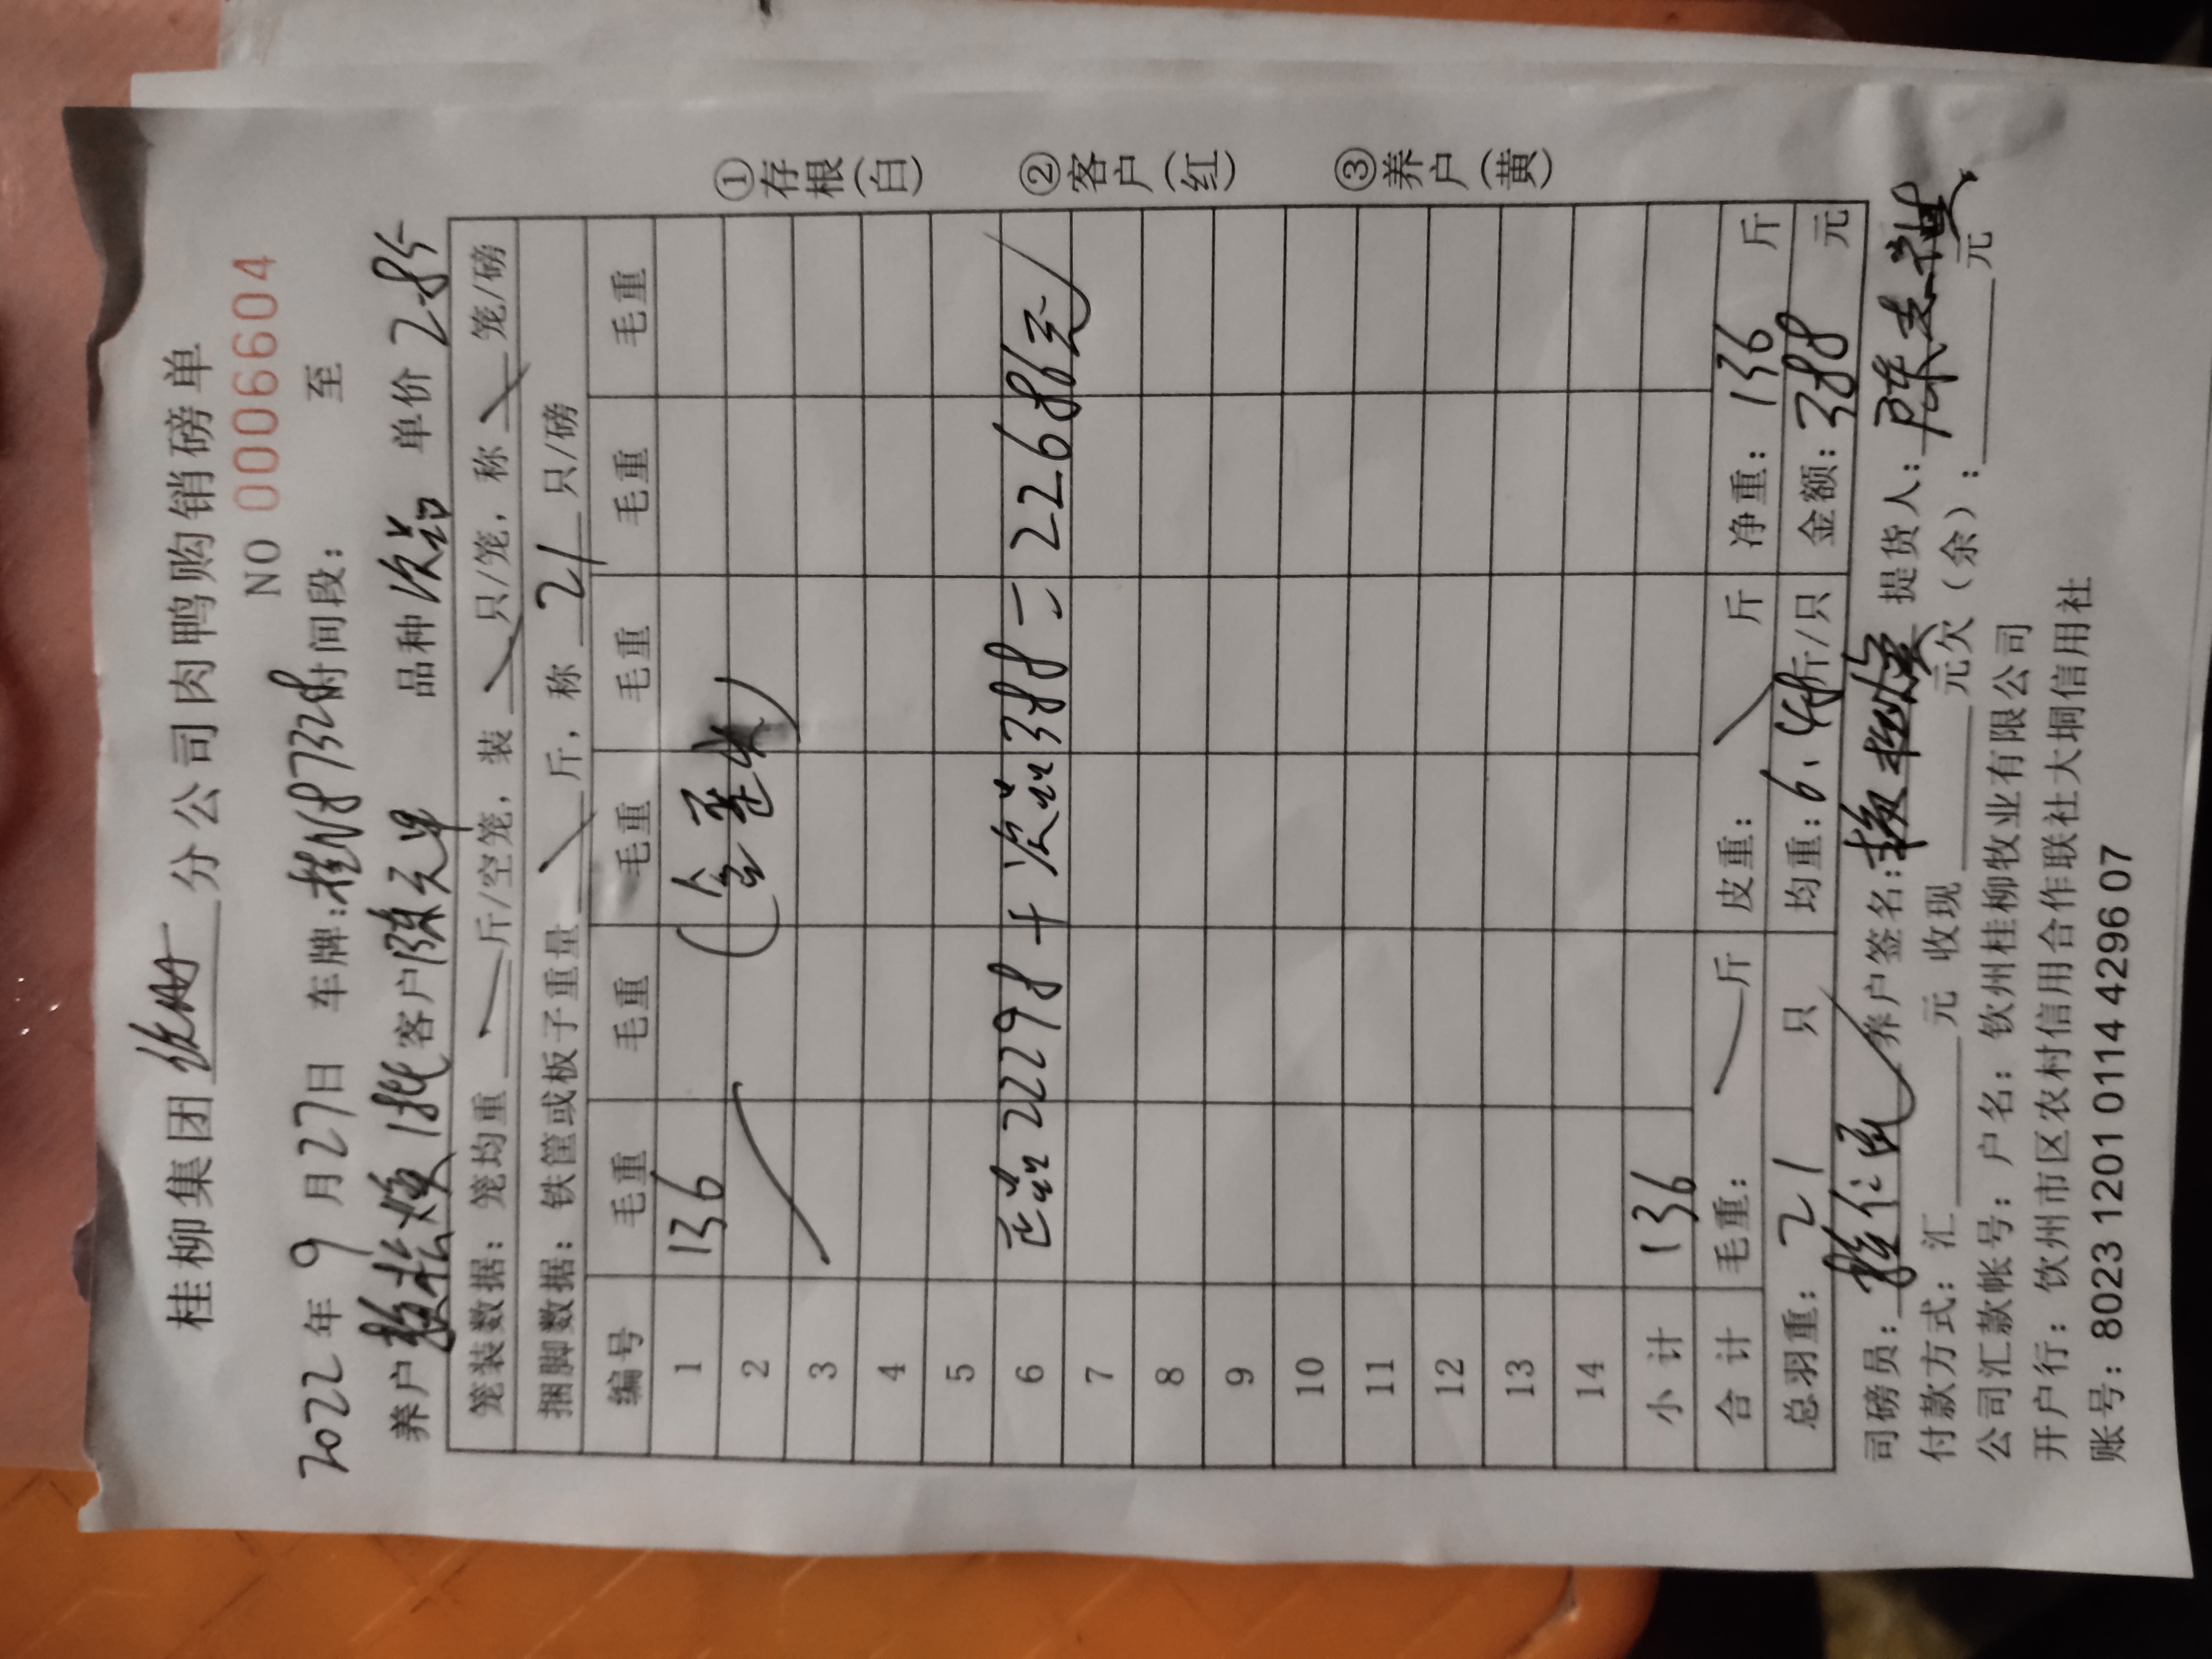 桂柳集团 分公司肉鸭购销磅单
NO 0006604
2022年9月27日 车牌:桂N8732 时间段: 至
养户 1批 客户 陈元 品种 次品 单价 2.85
笼装数据:笼均重 斤/空笼,装 只/笼,称 笼/磅
捆脚数据:铁筐或板子重量 斤,称 21 只/磅
编号 毛重 毛重 毛重 毛重 毛重 毛重
1 136 (全
2
3
4
5
6 正品22298+次品388=22686元
7
8
9
10
11
12
13
14
小计 136
合计 毛重: 斤 皮重: 斤 净重:136 斤
总羽重:21 只 均重:6.48斤/只 金额:388 元
司磅员: 养户签名: 提货人:陈
付款方式:汇 元 收现 元欠(余): 元
公司汇款帐号:户名:钦州桂柳牧业有限公司
开户行:钦州市区农村信用合作联社大垌信用社
账号:8023 1201 0114 4296 07
①存根(白)
②客户(红)
③养户(黄)